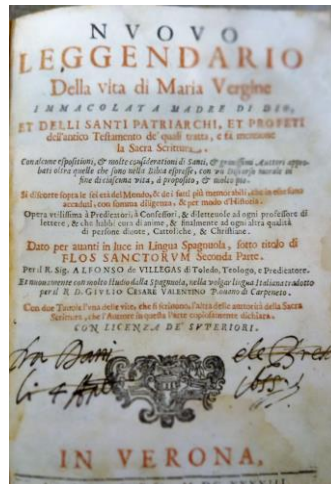 NVOVO
LEGGENDARIO
Della vita di Maria Vergine
IMMACOLATA MADRE DI DIO,
ET DELLI SANTI PATRIARCHI, ET PROFETI
dell'antico Testamento de' quali tratta, e fà mentione
la Sacra Scrittura.
Con alcune espositioni, & molte considerationi di Santi, & grauissimi Auttori appro-
bati oltra quelle che sono nella Bibia espresse, con vn discorso morale in
fine di ciascuna vita, à proposito, & molto pio.
Si discorre sopra le sei età del Mondo, & de i fatti più memorabili, che in esse sono
accaduti, con somma diligenza, & per modo d'Historia.
Opera vtilissima à Predicatori, à Confessori, & diletteuole ad ogni professore di
lettere, & che habbi cura di anime, & finalmente ad ogni altra qualità
di persone diuote, Cattoliche, & Christiane.
Dato per auanti in luce in Lingua Spagnuola, sotto titolo di
FLOS SANCTORVM Seconda Parte.
Per il R. Sig. ALFONSO de VILLEGAS di Toledo, Teologo, e Predicatore.
Et nuouamente con molto studio dalla Spagnuola, nella volgar lingua Italiana tradotto
per il R D. GIVLIO CESARE VALENTINO Piouano di Carpeneto.
Con due Tauole l'vna delle vite, che si scriuono, l'altra delle auttorità della Sacra
Scrittura, che l'Auttore in questa Parte copiosamente dichiara.
CON LICENZA DE' SVPERIORI.
IN VERONA,